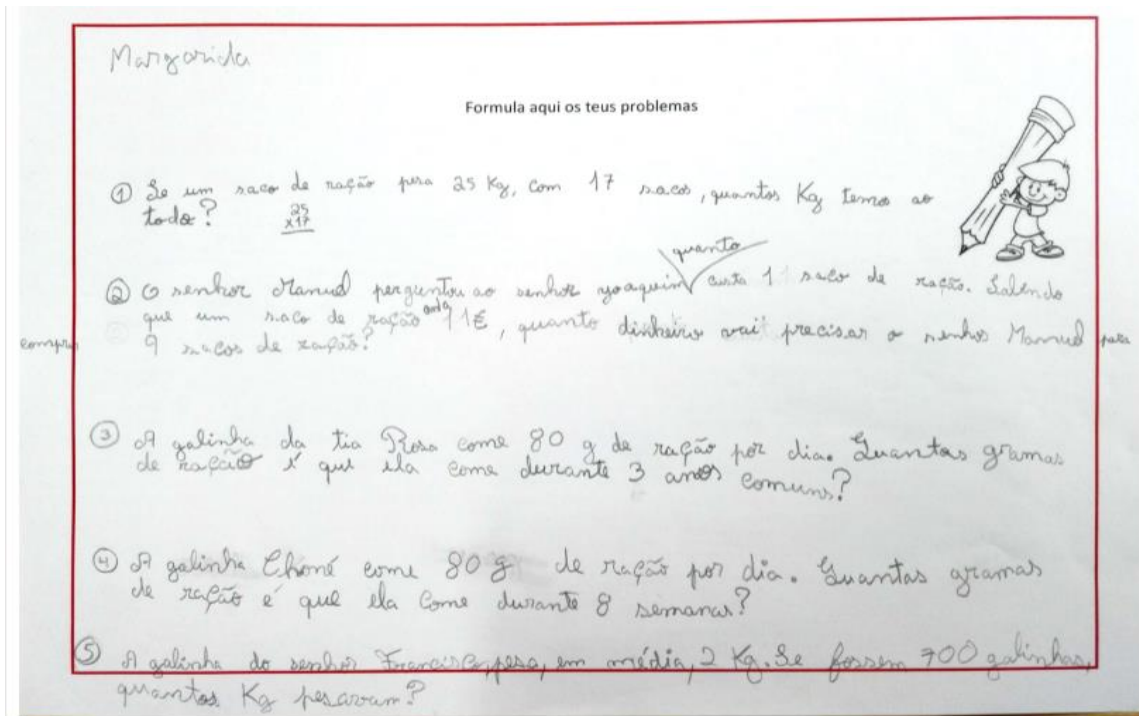 Margarida
Formula aqui os teus problemas
① Se um saco de ração pesa 25 Kg, com 17 sacos, quantos Kg temos ao
todo?
25
x17
quanto
② O senhor Manuel perguntou ao senhor yoaquin custa 1 saco de ração. Sabendo
que um saco de ração 11€, quanto dinheiro vai precisar o senhor Manuel para
comprar 9 sacos de ração?
③ A galinha da tia Rosa come 80 g de ração por dia. Quantas gramas
de ração é que ela come durante 3 anos comuns?
④ A galinha Choné come 80 g de ração por dia. Quantas gramas
de ração é que ela come durante 8 semanas?
⑤ A galinha do senhor Francisco, pesa, em média, 2 Kg. Se fossem 700 galinhas,
quantos Kg pesavam?